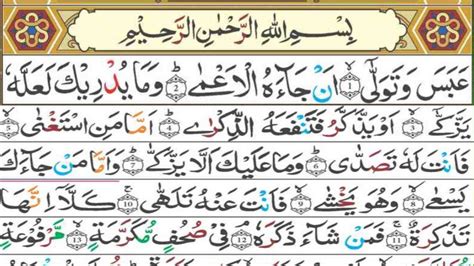 بِسْمِ اللهِ الرَّحْمٰنِ الرَّحِيْمِ
عَبَسَ وَتَوَلّٰىٓ ۝١ اَنْ جَآءَهُ الْاَعْمٰى ۝٢ وَمَا يُدْرِيْكَ لَعَلَّهٗ
يَزَّكّٰىٓ ۝٣ اَوْ يَذَّكَّرُ فَتَنْفَعَهُ الذِّكْرٰى ۝٤ اَمَّا مَنِ اسْتَغْنٰى ۝٥
فَاَنْتَ لَهٗ تَصَدّٰى ۝٦ وَمَا عَلَيْكَ اَلَّا يَزَّكّٰى ۝٧ وَاَمَّا مَنْ جَآءَكَ
يَسْعٰى ۝٨ وَهُوَ يَخْشٰى ۝٩ فَاَنْتَ عَنْهُ تَلَهّٰى ۝١٠ كَلَّآ اِنَّهَا
تَذْكِرَةٌ ۝١١ فَمَنْ شَآءَ ذَكَرَهٗ ۝١٢ فِيْ صُحُفٍ مُّكَرَّمَةٍ ۝١٣ مَّرْفُوْعَةٍ